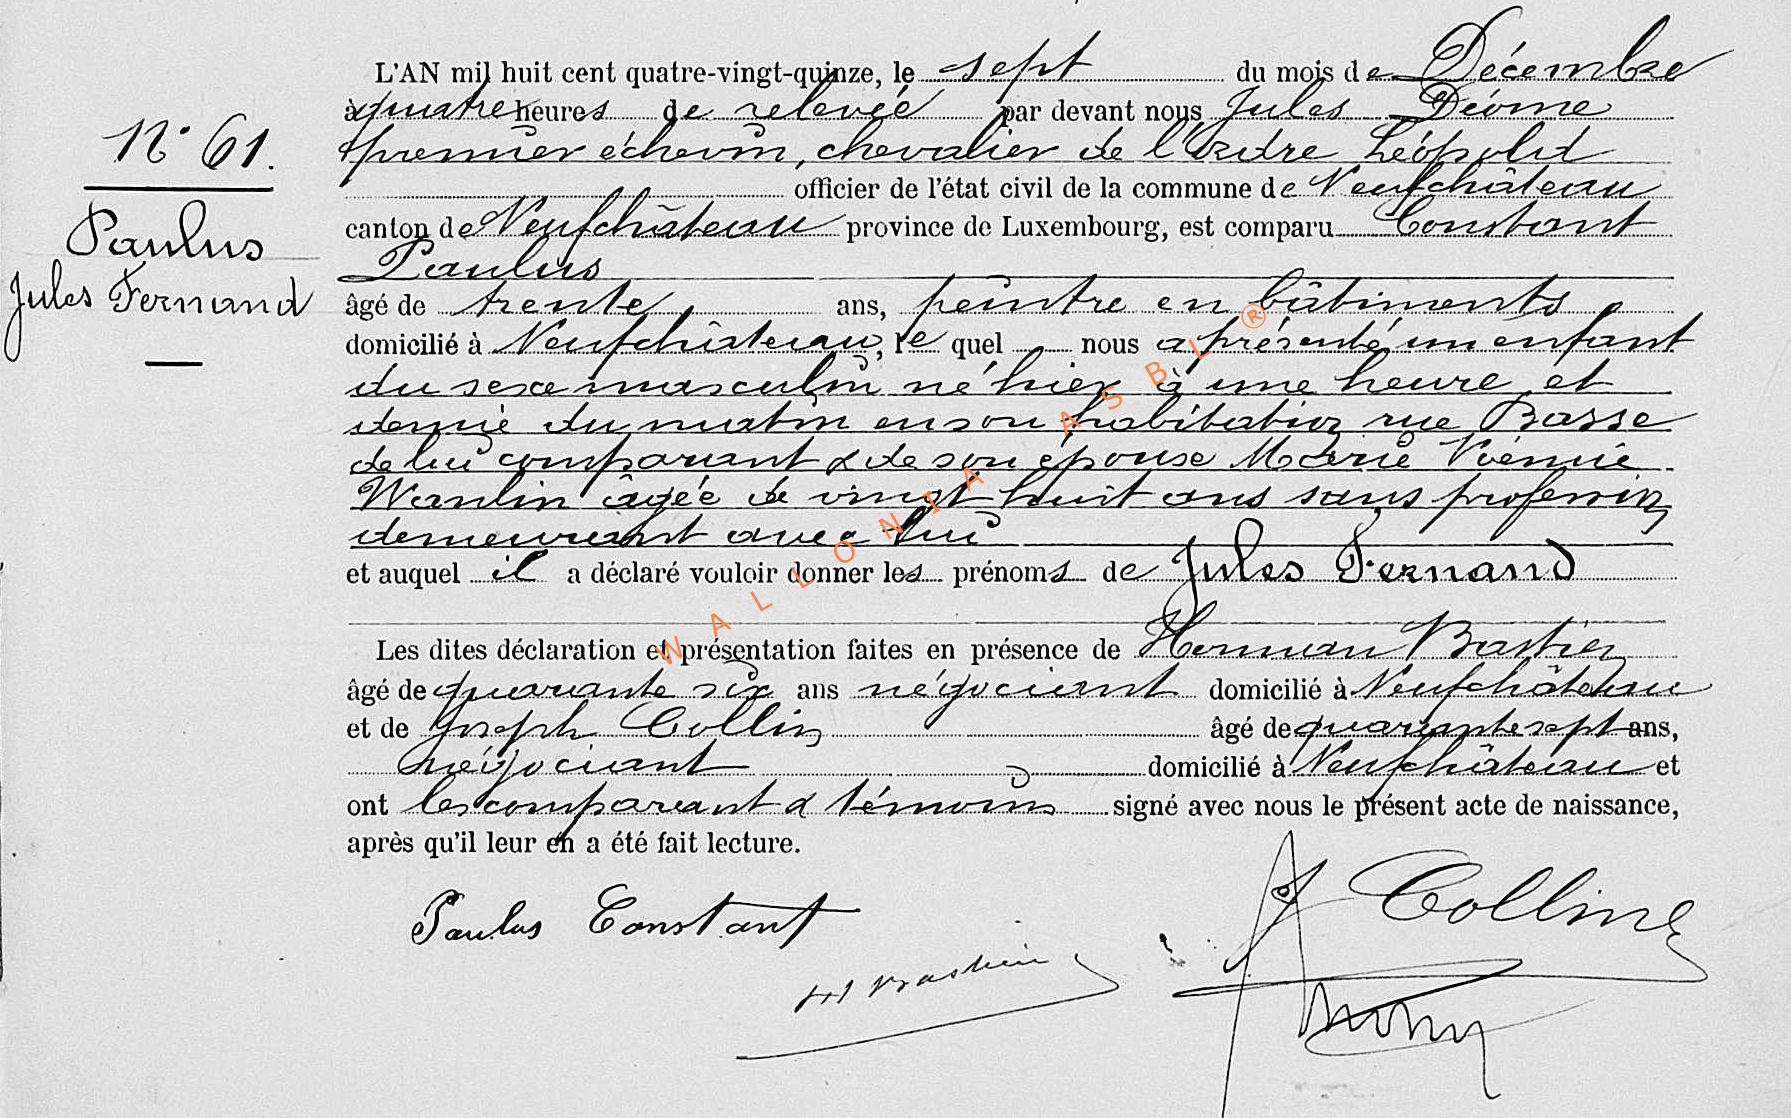 N° 61.
Paulus
Jules Fernand
L'AN mil huit cent quatre-vingt-quinze, le sept du mois de Décembre
à quatre heures de relevée par devant nous Jules Déome
premier échevin, chevalier de l'Ordre Léopold
officier de l'état civil de la commune de Neufchâteau
canton de Neufchâteau province de Luxembourg, est comparu Constant
Paulus
âgé de trente ans, peintre en bâtiments
domicilié à Neufchâteau, le quel nous a présenté un enfant
du sexe masculin né hier à une heure et
demie du matin en son habitation rue Basse
de lui comparant & de son épouse Marie Noémie
Wanlin âgée de vingt huit ans sans profession
demeurant avec lui
et auquel il a déclaré vouloir donner les prénoms de Jules Fernand
Les dites déclaration et présentation faites en présence de Herman Bastien
âgé de quarante six ans négociant domicilié à Neufchâteau
et de Joseph Collin âgé de quarante sept ans,
négociant domicilié à Neufchâteau et
ont les comparant & témoins signé avec nous le présent acte de naissance,
après qu'il leur en a été fait lecture.
Paulus Constant
J Collin
H Bastien
WALLONIA ASBL ®